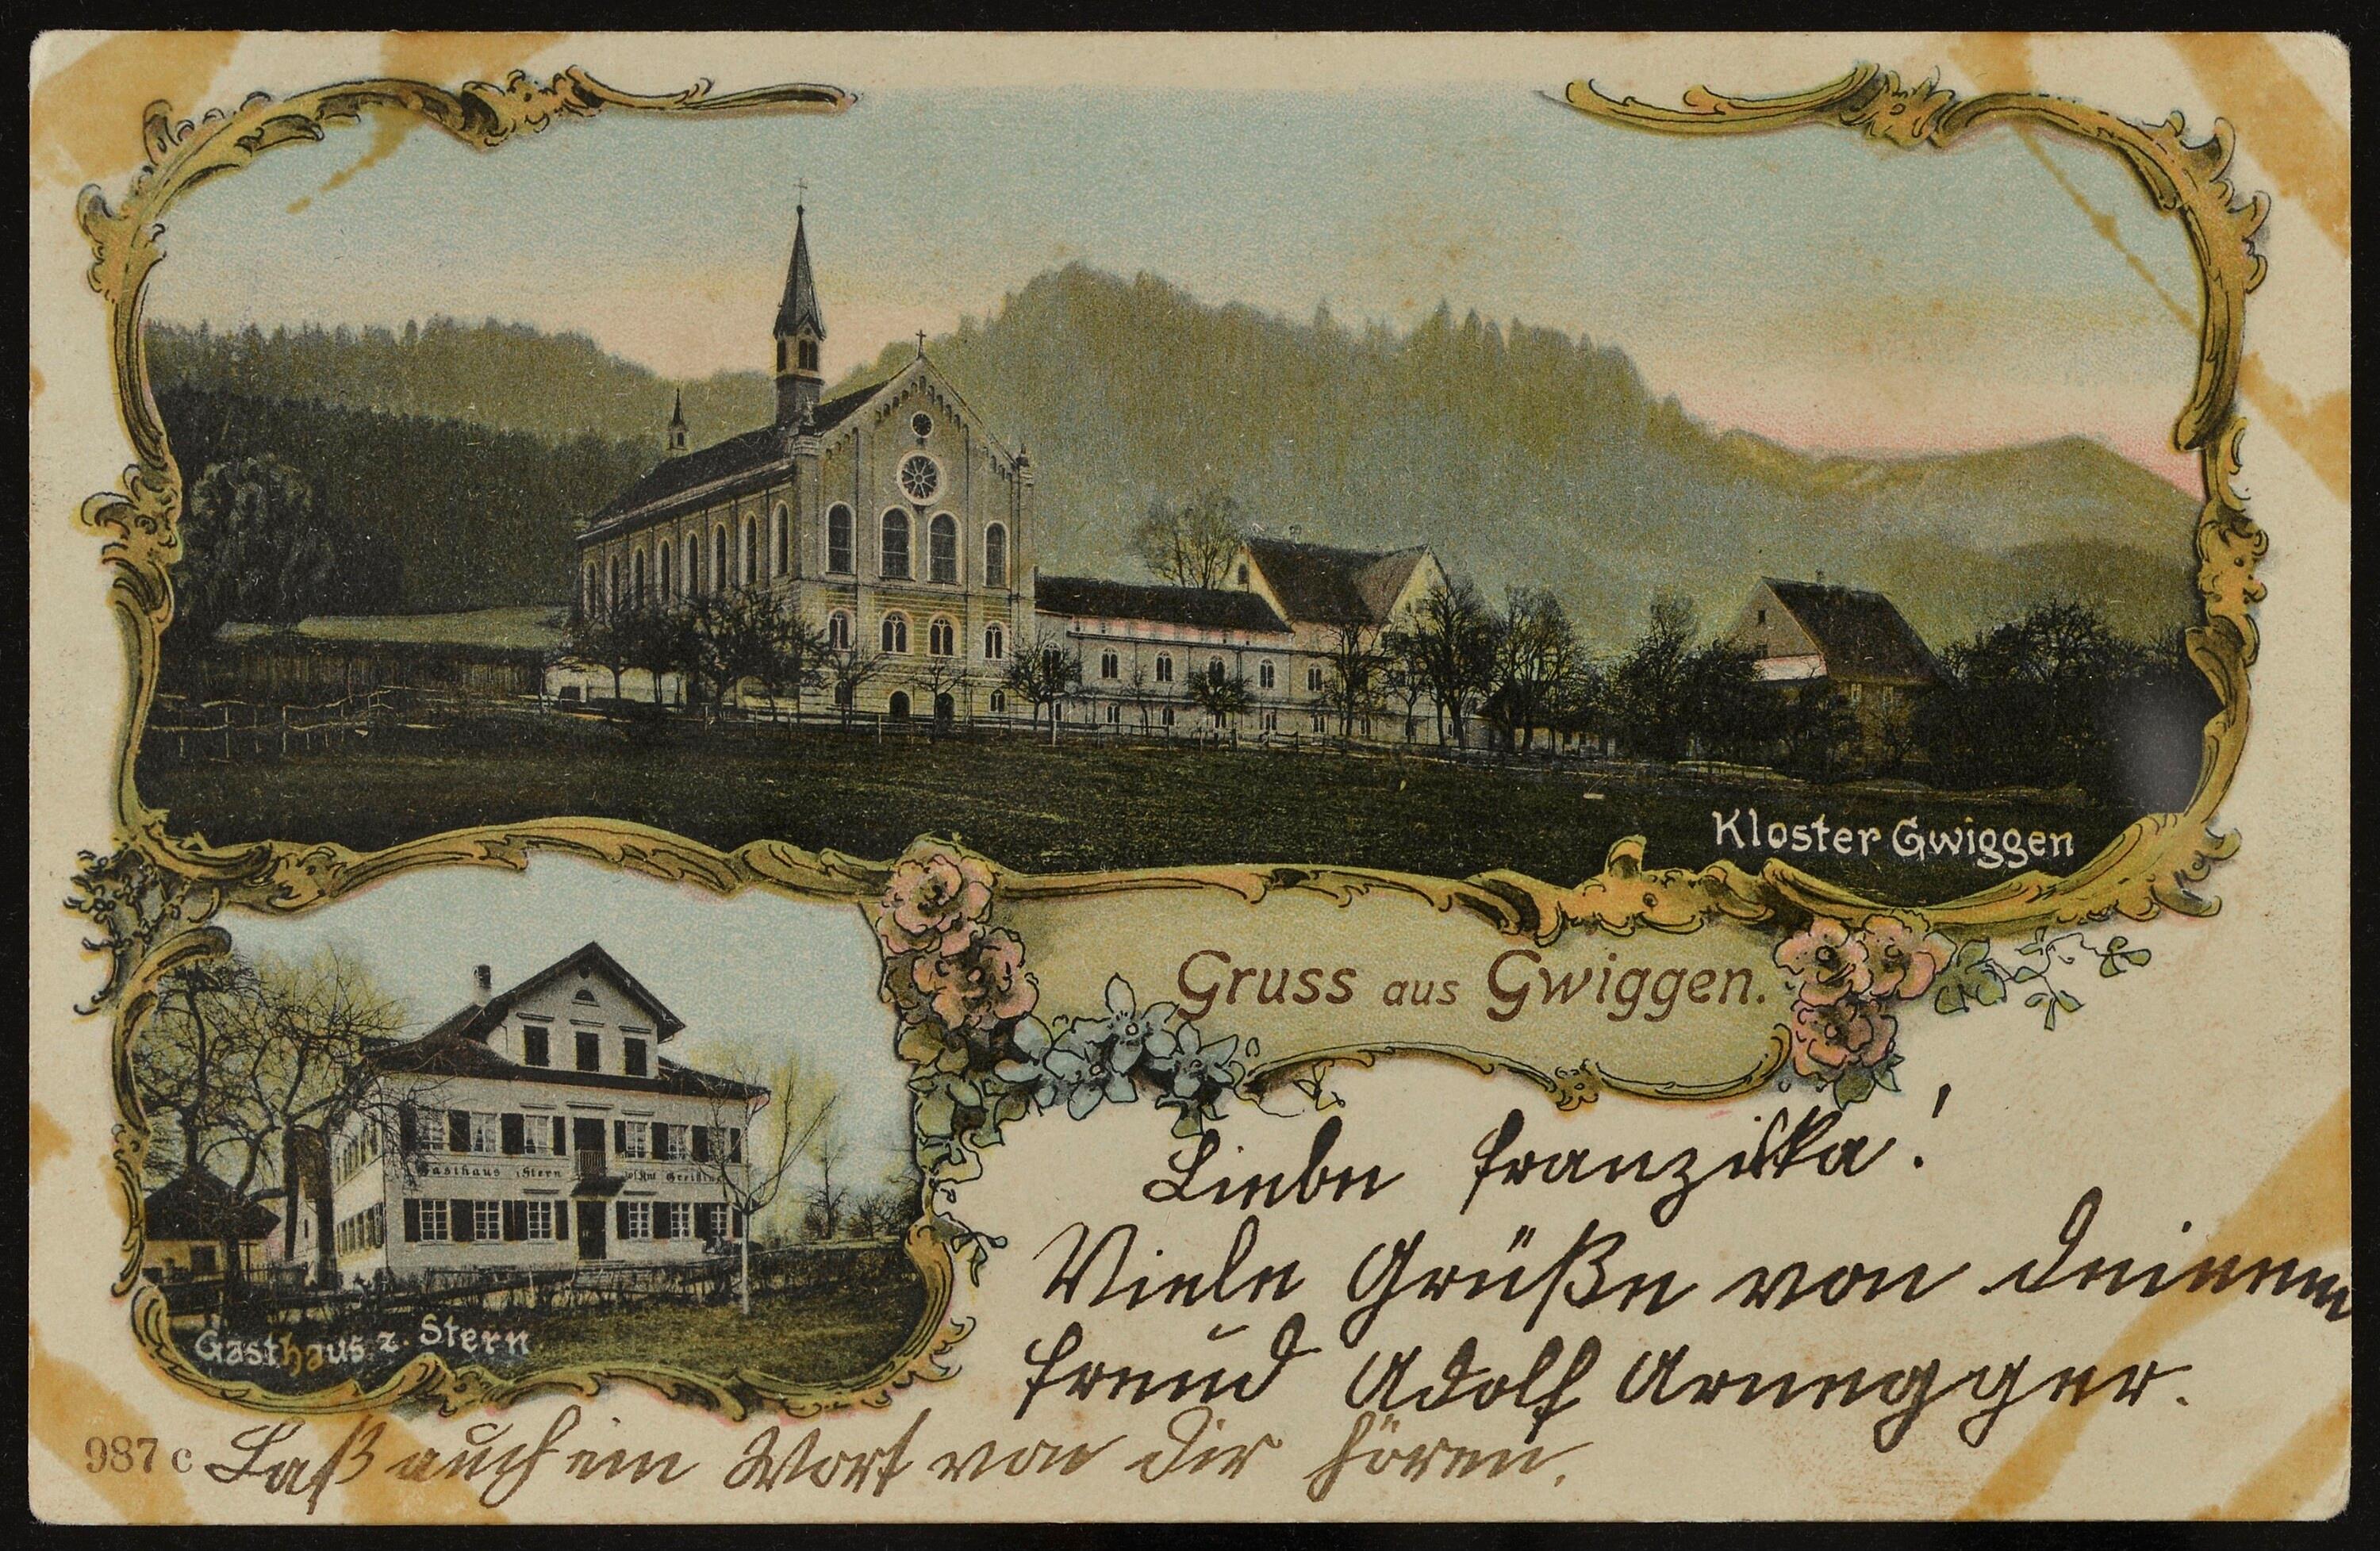 Kloster Gwiggen
Gruss aus Gwiggen.
Gasthaus Stern
Gasthaus z. Stern
Liebe Franziska!
Viele Grüße von deinem
Freund Adolf Arnegger.
987 c
Laß auch ein Wort von dir hören.